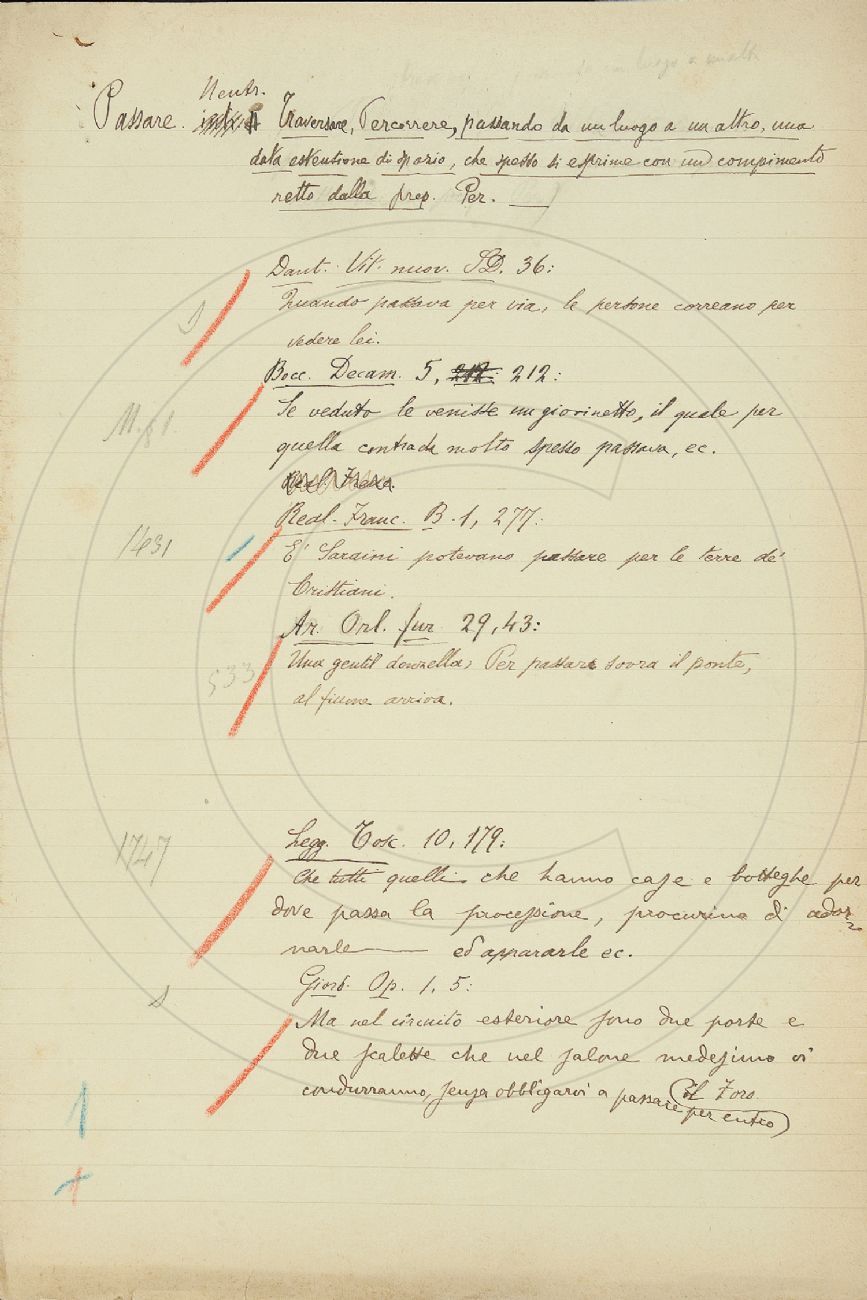 Neutr.
Passare. Traversare, Percorrere, passando da un luogo a un altro, una
data estensione di spazio, che spesso si esprime con un compimento
retto dalla prep. Per. —
Dant. Vit. nuov. SD. 36:
Quando passava per via, le persone correano per
vedere lei.
Bocc. Decam. 5, 212: 212:
Se veduto le venisse un giovinetto, il quale per
quella contrada molto spesso passava, ec.
Real. Franc. B. 1, 277:
1431
E' Saraini potevano passare per le terre de'
Cristiani.
Ar. Orl. fur. 29, 43:
Una gentil donzella, Per passare sovra il ponte,
533
al fiume arriva.
Legg. Tosc. 10, 179:
1747
Che tutti quelli che hanno case e botteghe per
dove passa la processione, procurino di ador-
narle — ed appararle ec.
Giord. Op. 1, 5:
Ma nel circuito esteriore sono due porte e
due scalette che nel salone medesimo vi
condurranno, senza obbligarvi a passare per entro
il Foro.
1
+